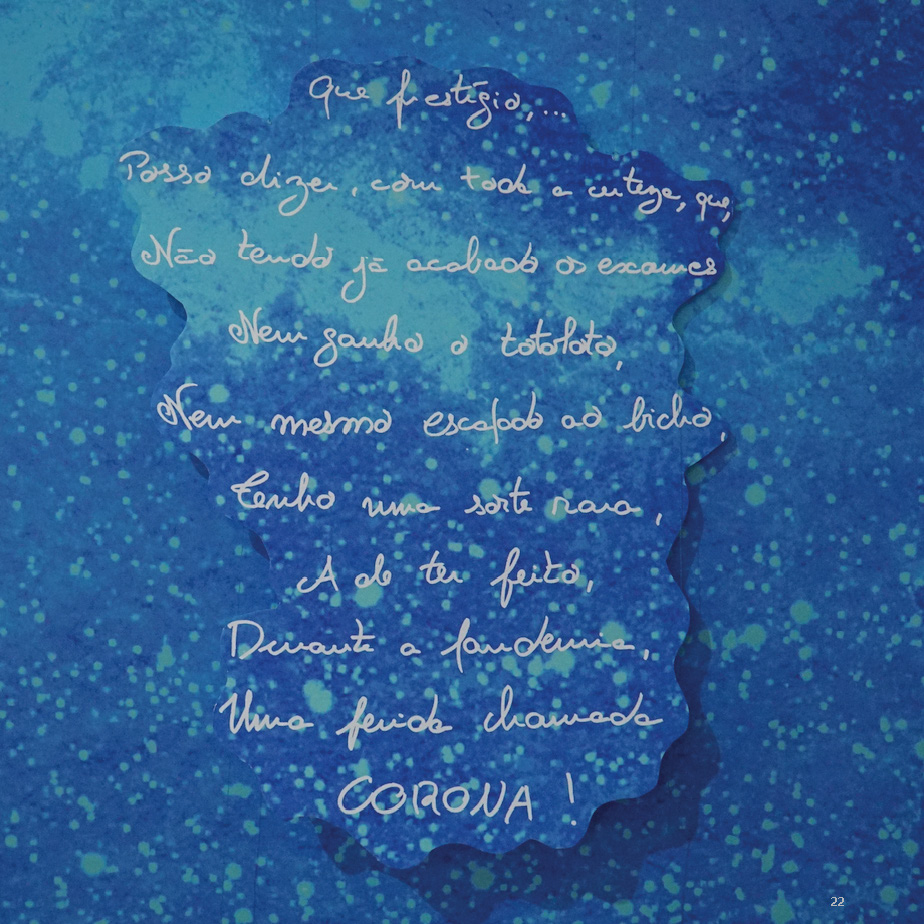 Que prestígio,...
Posso dizer, com toda a certeza, que,
Não tendo já acabado os exames
Nem ganho o totoloto,
Nem mesmo escapado ao bicho,
Tenho uma sorte rara,
A de ter feito,
Durante a pandemia,
Uma ferida chamada
CORONA !
22